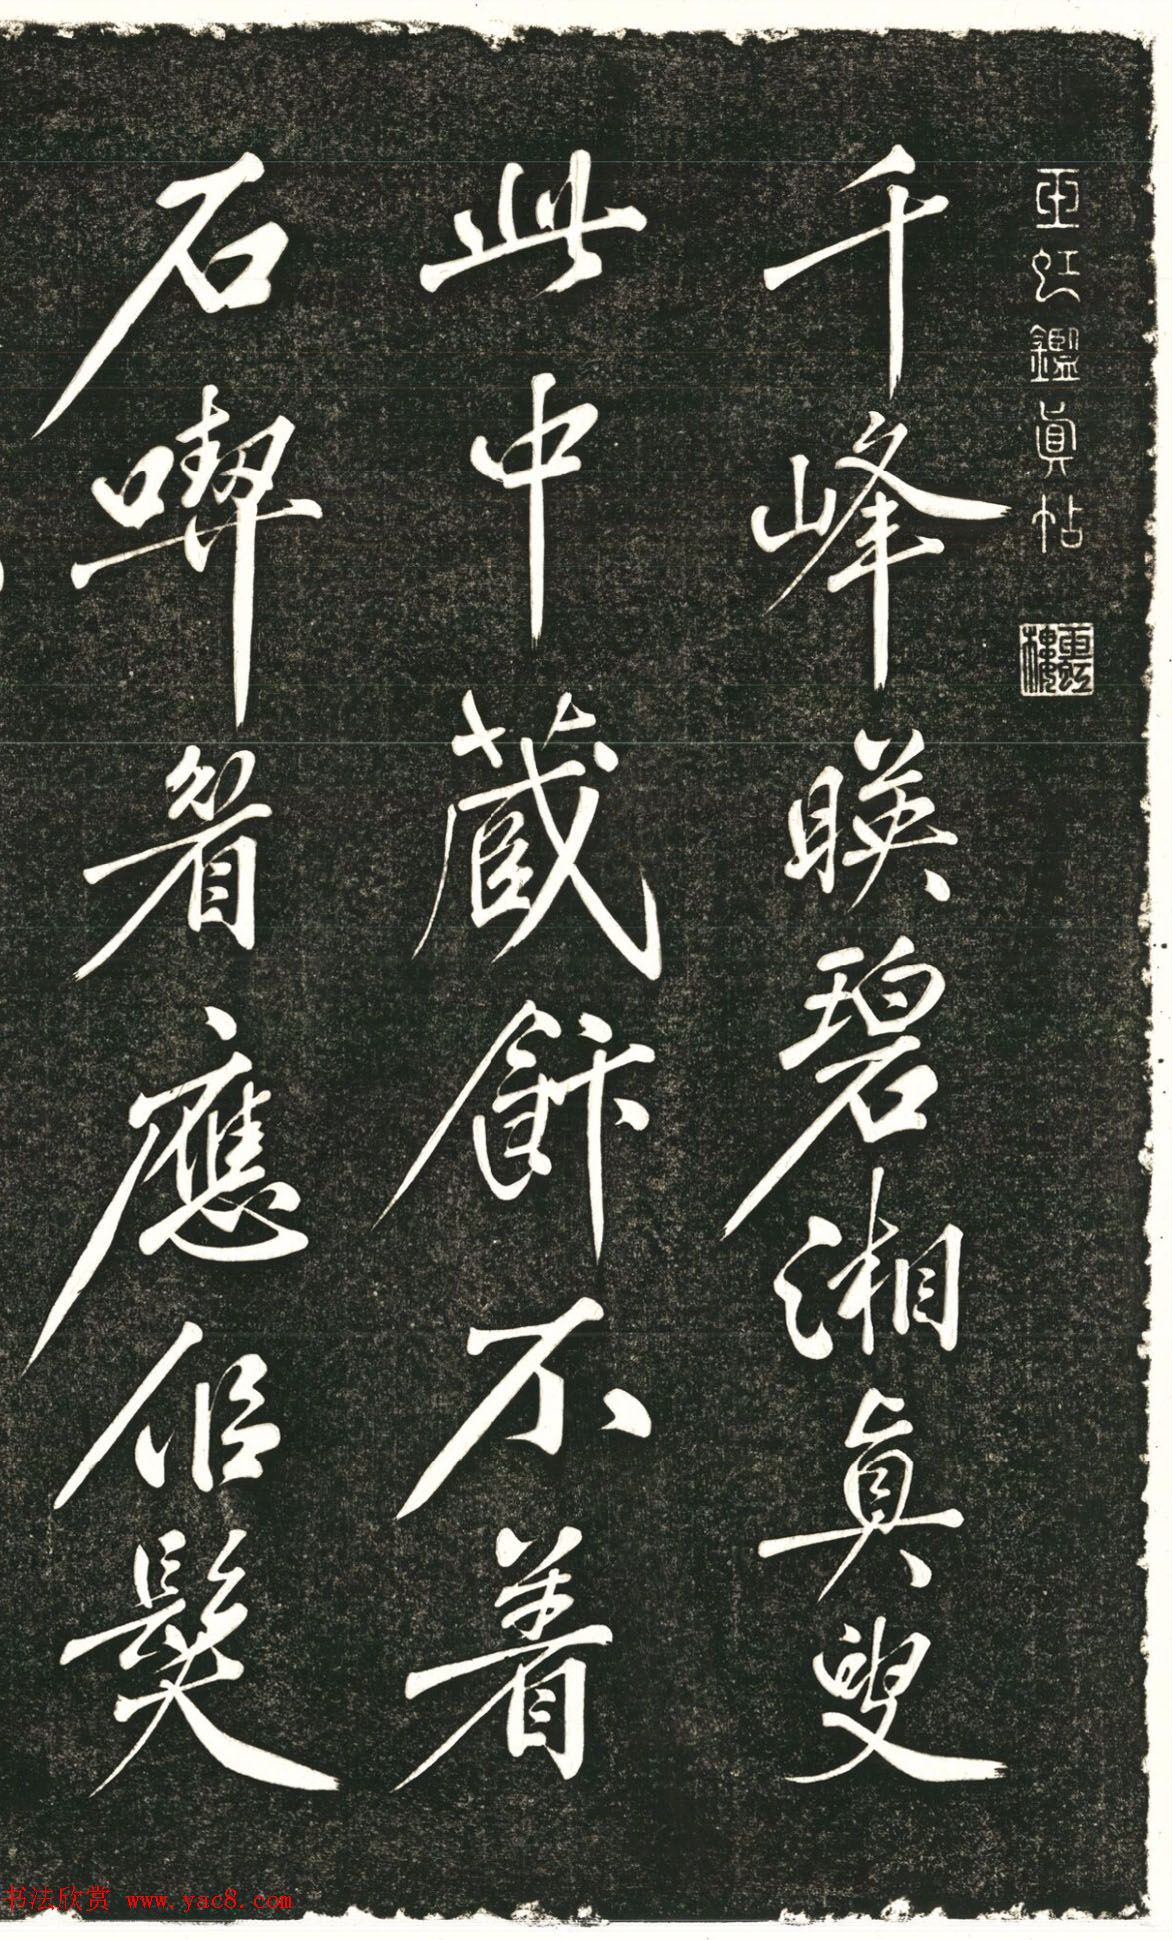 玉虹鑑真帖
玉虹樓
千峰暎碧湘真叟
此中藏飰不着
石喫眉應佀髮
书法欣赏 www.yac8.com